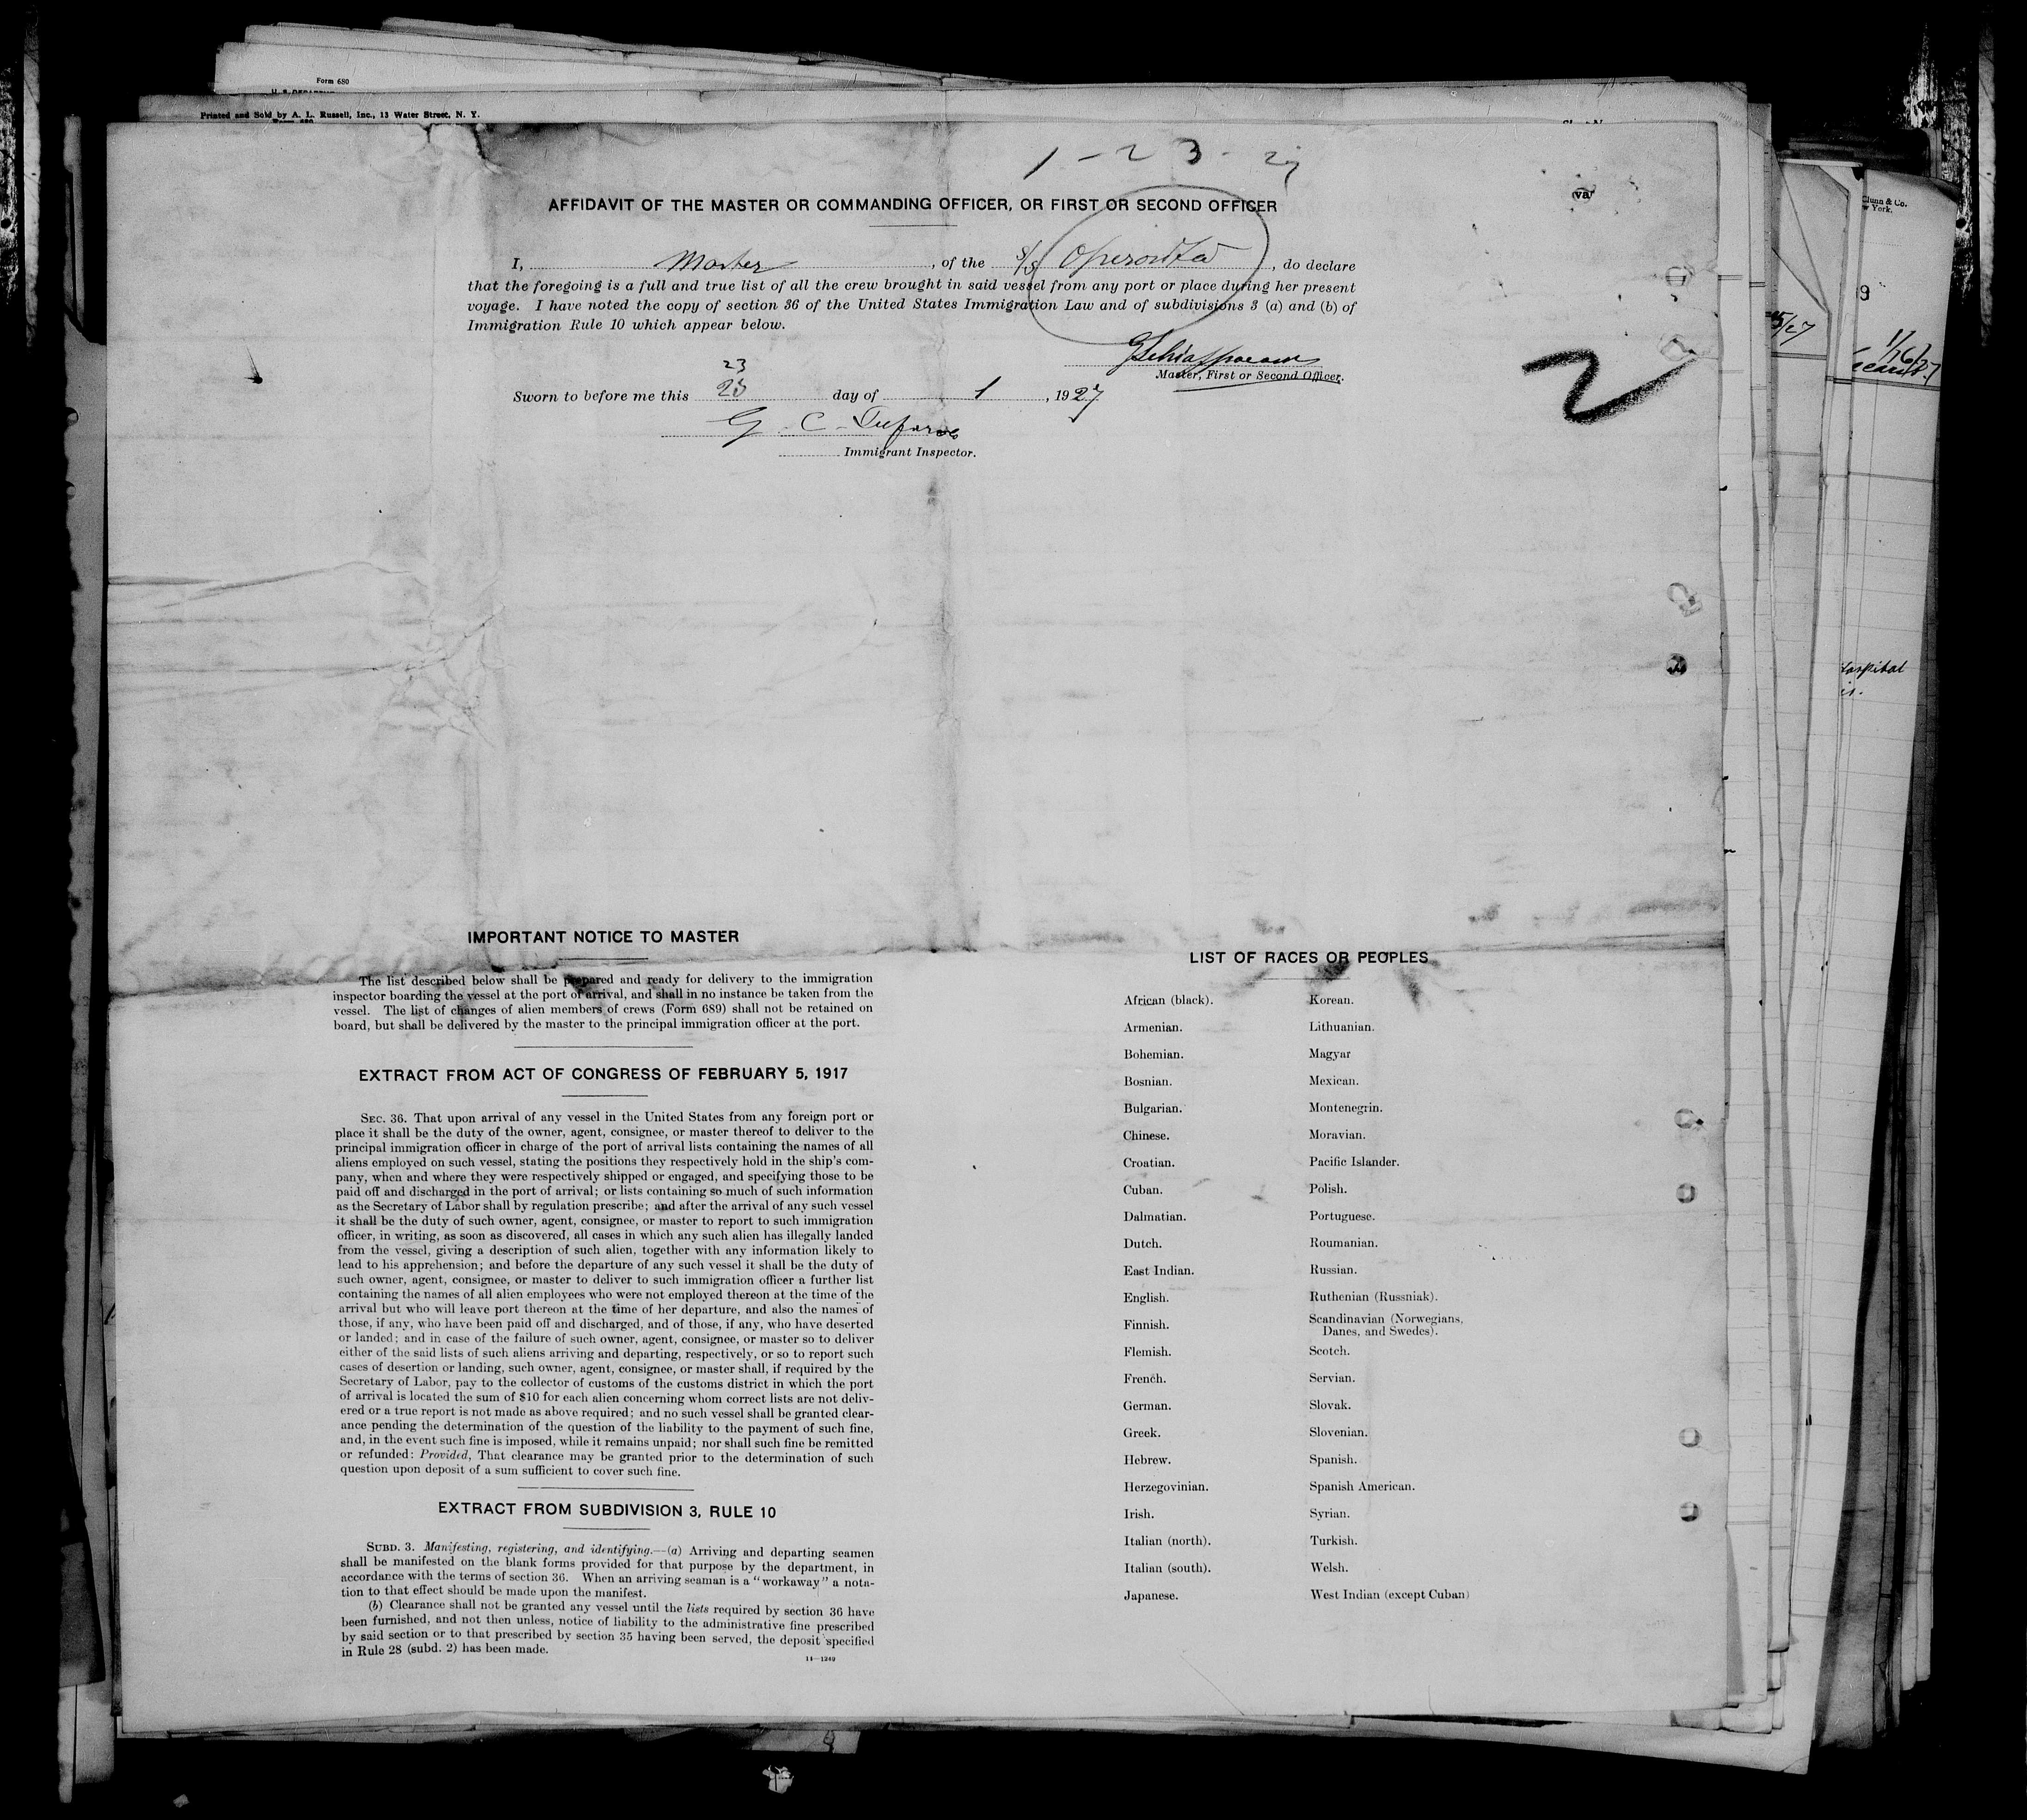 Form 680
Printed and Sold by A. L. Russell, Inc., 13 Water Street, N. Y.
1-23-27
AFFIDAVIT OF THE MASTER OR COMMANDING OFFICER, OR FIRST OR SECOND OFFICER
I, Master, of the S/S, do declare
that the foregoing is a full and true list of all the crew brought in said vessel from any port or place during her present
voyage. I have noted the copy of section 36 of the United States Immigration Law and of subdivisions 3 (a) and (b) of
Immigration Rule 10 which appear below.
Master, First or Second Officer.
23
Sworn to before me this 23 day of 1, 1927
G. C.
Immigrant Inspector.
2
5/27
9
IMPORTANT NOTICE TO MASTER
The list described below shall be prepared and ready for delivery to the immigration
inspector boarding the vessel at the port of arrival, and shall in no instance be taken from the
vessel. The list of changes of alien members of crews (Form 689) shall not be retained on
board, but shall be delivered by the master to the principal immigration officer at the port.
EXTRACT FROM ACT OF CONGRESS OF FEBRUARY 5, 1917
SEC. 36. That upon arrival of any vessel in the United States from any foreign port or
place it shall be the duty of the owner, agent, consignee, or master thereof to deliver to the
principal immigration officer in charge of the port of arrival lists containing the names of all
aliens employed on such vessel, stating the positions they respectively hold in the ship's com-
pany, when and where they were respectively shipped or engaged, and specifying those to be
paid off and discharged in the port of arrival; or lists containing so much of such information
as the Secretary of Labor shall by regulation prescribe; and after the arrival of any such vessel
it shall be the duty of such owner, agent, consignee, or master to report to such immigration
officer, in writing, as soon as discovered, all cases in which any such alien has illegally landed
from the vessel, giving a description of such alien, together with any information likely to
lead to his apprehension; and before the departure of any such vessel it shall be the duty of
such owner, agent, consignee, or master to deliver to such immigration officer a further list
containing the names of all alien employees who were not employed thereon at the time of the
arrival but who will leave port thereon at the time of her departure, and also the names of
those, if any, who have been paid off and discharged, and of those, if any, who have deserted
or landed; and in case of the failure of such owner, agent, consignee, or master so to deliver
either of the said lists of such aliens arriving and departing, respectively, or so to report such
cases of desertion or landing, such owner, agent, consignee, or master shall, if required by the
Secretary of Labor, pay to the collector of customs of the customs district in which the port
of arrival is located the sum of $10 for each alien concerning whom correct lists are not deliv-
ered or a true report is not made as above required; and no such vessel shall be granted clear-
ance pending the determination of the question of the liability to the payment of such fine,
and, in the event such fine is imposed, while it remains unpaid; nor shall such fine be remitted
or refunded: Provided, That clearance may be granted prior to the determination of such
question upon deposit of a sum sufficient to cover such fine.
EXTRACT FROM SUBDIVISION 3, RULE 10
SUBD. 3. Manifesting, registering, and identifying.—(a) Arriving and departing seamen
shall be manifested on the blank forms provided for that purpose by the department, in
accordance with the terms of section 36. When an arriving seaman is a "workaway" a nota-
tion to that effect should be made upon the manifest.
(b) Clearance shall not be granted any vessel until the lists required by section 36 have
been furnished, and not then unless, notice of liability to the administrative fine prescribed
by said section or to that prescribed by section 35 having been served, the deposit specified
in Rule 28 (subd. 2) has been made.
14—1249
LIST OF RACES OR PEOPLES
African (black).
Armenian.
Bohemian.
Bosnian.
Bulgarian.
Chinese.
Croatian.
Cuban.
Dalmatian.
Dutch.
East Indian.
English.
Finnish.
Flemish.
French.
German.
Greek.
Hebrew.
Herzegovinian.
Irish.
Italian (north).
Italian (south).
Japanese.
Korean.
Lithuanian.
Magyar
Mexican.
Montenegrin.
Moravian.
Pacific Islander.
Polish.
Portuguese.
Roumanian.
Russian.
Ruthenian (Russniak).
Scandinavian (Norwegians,
Danes, and Swedes).
Scotch.
Servian.
Slovak.
Slovenian.
Spanish.
Spanish American.
Syrian.
Turkish.
Welsh.
West Indian (except Cuban)